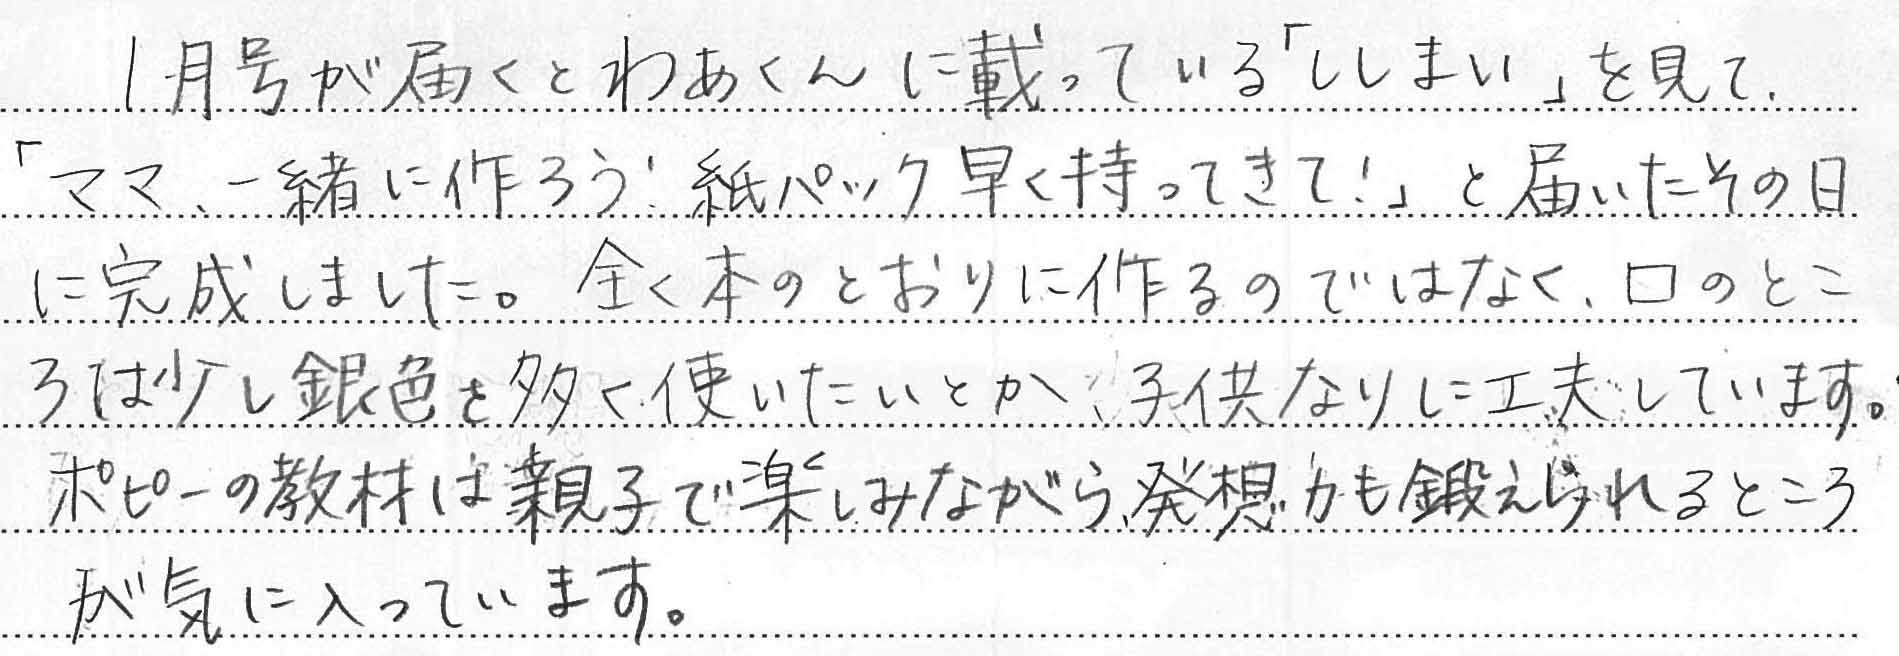 1月号が届くとわあくんに載っている「ししまい」を見て、
「ママ、一緒に作ろう!紙パック早く持ってきて!」と届いたその日
に完成しました。全く本のとおりに作るのではなく、口のとこ
ろは少し銀色を多く使いたいとか、子供なりに工夫しています。
ポピーの教材は親子で楽しみながら、発想力も鍛えられるところ
が気に入っています。